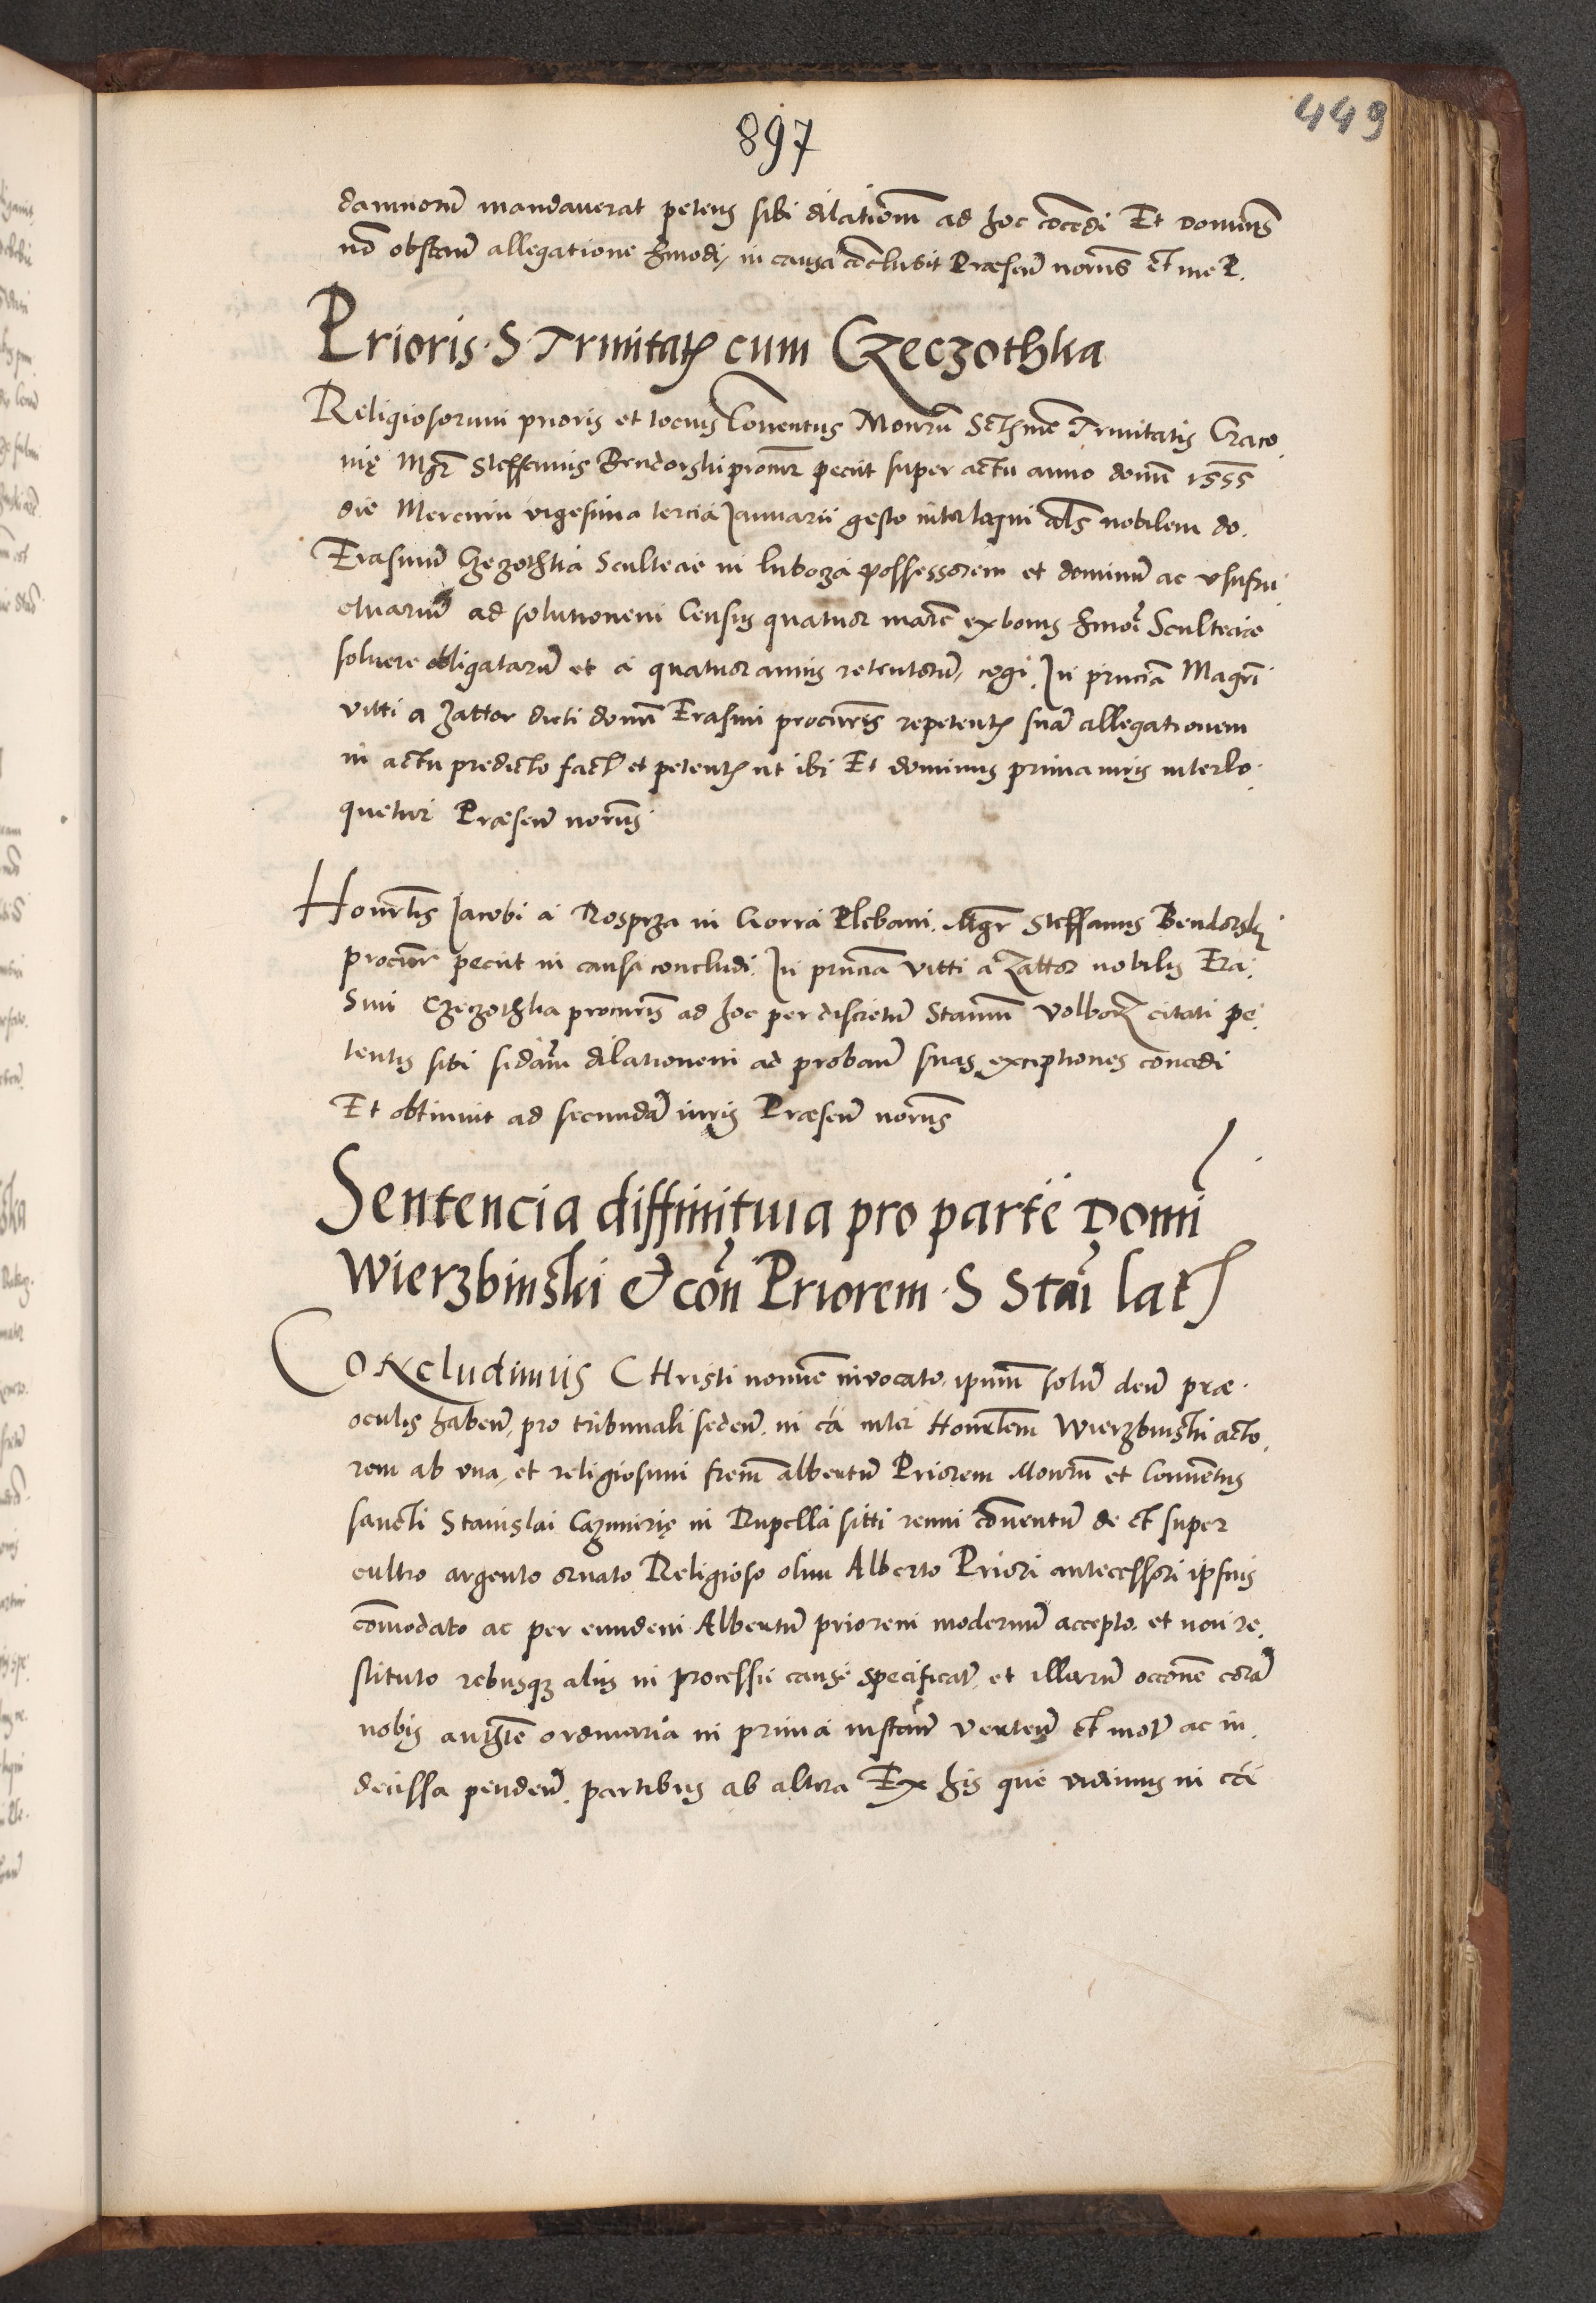 449
897
damnorū mandaverat petens sibi dilationem ad hoc cōcedi Et Dominus
nō obstan̄ allegatione hm̄odi, in causa cōclusit Præsen̄ notarīs et me P.
Prioris S Trinitatis cum Czeczothka
Religiosorum prioris et tocius Conventus Monr̄ii Sctissime Trinitatis Craco
nię Mgr̄ Steffanus Bendorski procur̄ petiit super actu anno domī 1555
die Mercurii vigesima tercia Januarii gesto interloqui als nobilem do.
Erasmū Czeczothka Scultecie in luboza possessorem et dominū ac vsufru
ctuariū ad solutionem Census quatuor marc̄ ex bonis hm̄oi Scultecie
soluere obligatarū et a quatuor annis retentorū, cogi. In pn̄cia Magr̄i
vitti a Zattor dicti domī Erasmi procur̄is repetentis suā allegationem
in actu predicto factā et petentis ut ibi Et dominus prima iuris interlo
quetur Præsen̄ notar̄is
Honor̄lis Jacobi a Rosprza in Gorra Plebani. Mgr̄ Steffanus Bendorski
procur̄ petiit in causa concludi. In pn̄cia vitti a Zattor nobilis Era
Smi Czeczothka procur̄is ad hoc per discretū Stanm̄ Volborz citati pe
tentis sibi sc̄dam dilationem ad proban̄ suas exceptiones concedi
Et obtinuit ad secundā iuris Præsen̄ notar̄is
Sentencia diffinitiua pro parte Domi
Wierzbinski & con̄ Priorem S Stāi lat
Concludimus CHristi nomine invocato, ipsum solū deū præ
oculis haben̄, pro tribunali seden̄. in cā inter Honor̄lem Wierzbinski acto
rem ab vna, et religiosum frem̄ albertū Priorem Monr̄ii et Conventus
sancti Stanislai Cazimirię in Rupella sitti reum conventū de et super
cultro argento ornato Religioso olim Alberto Priori antecessori ipsius
cōmodato ac per eundem Albertū priorem modernū accepto. et non re
stituto rebusq₃ aliis in processu cause specificat̄. et illarū occōne corā
nobis auth̄te ordinaria in prima instan̄ verten̄ et mot̄ ac in
decissa penden̄. partibus ab altera Ex his que vidimus in cā